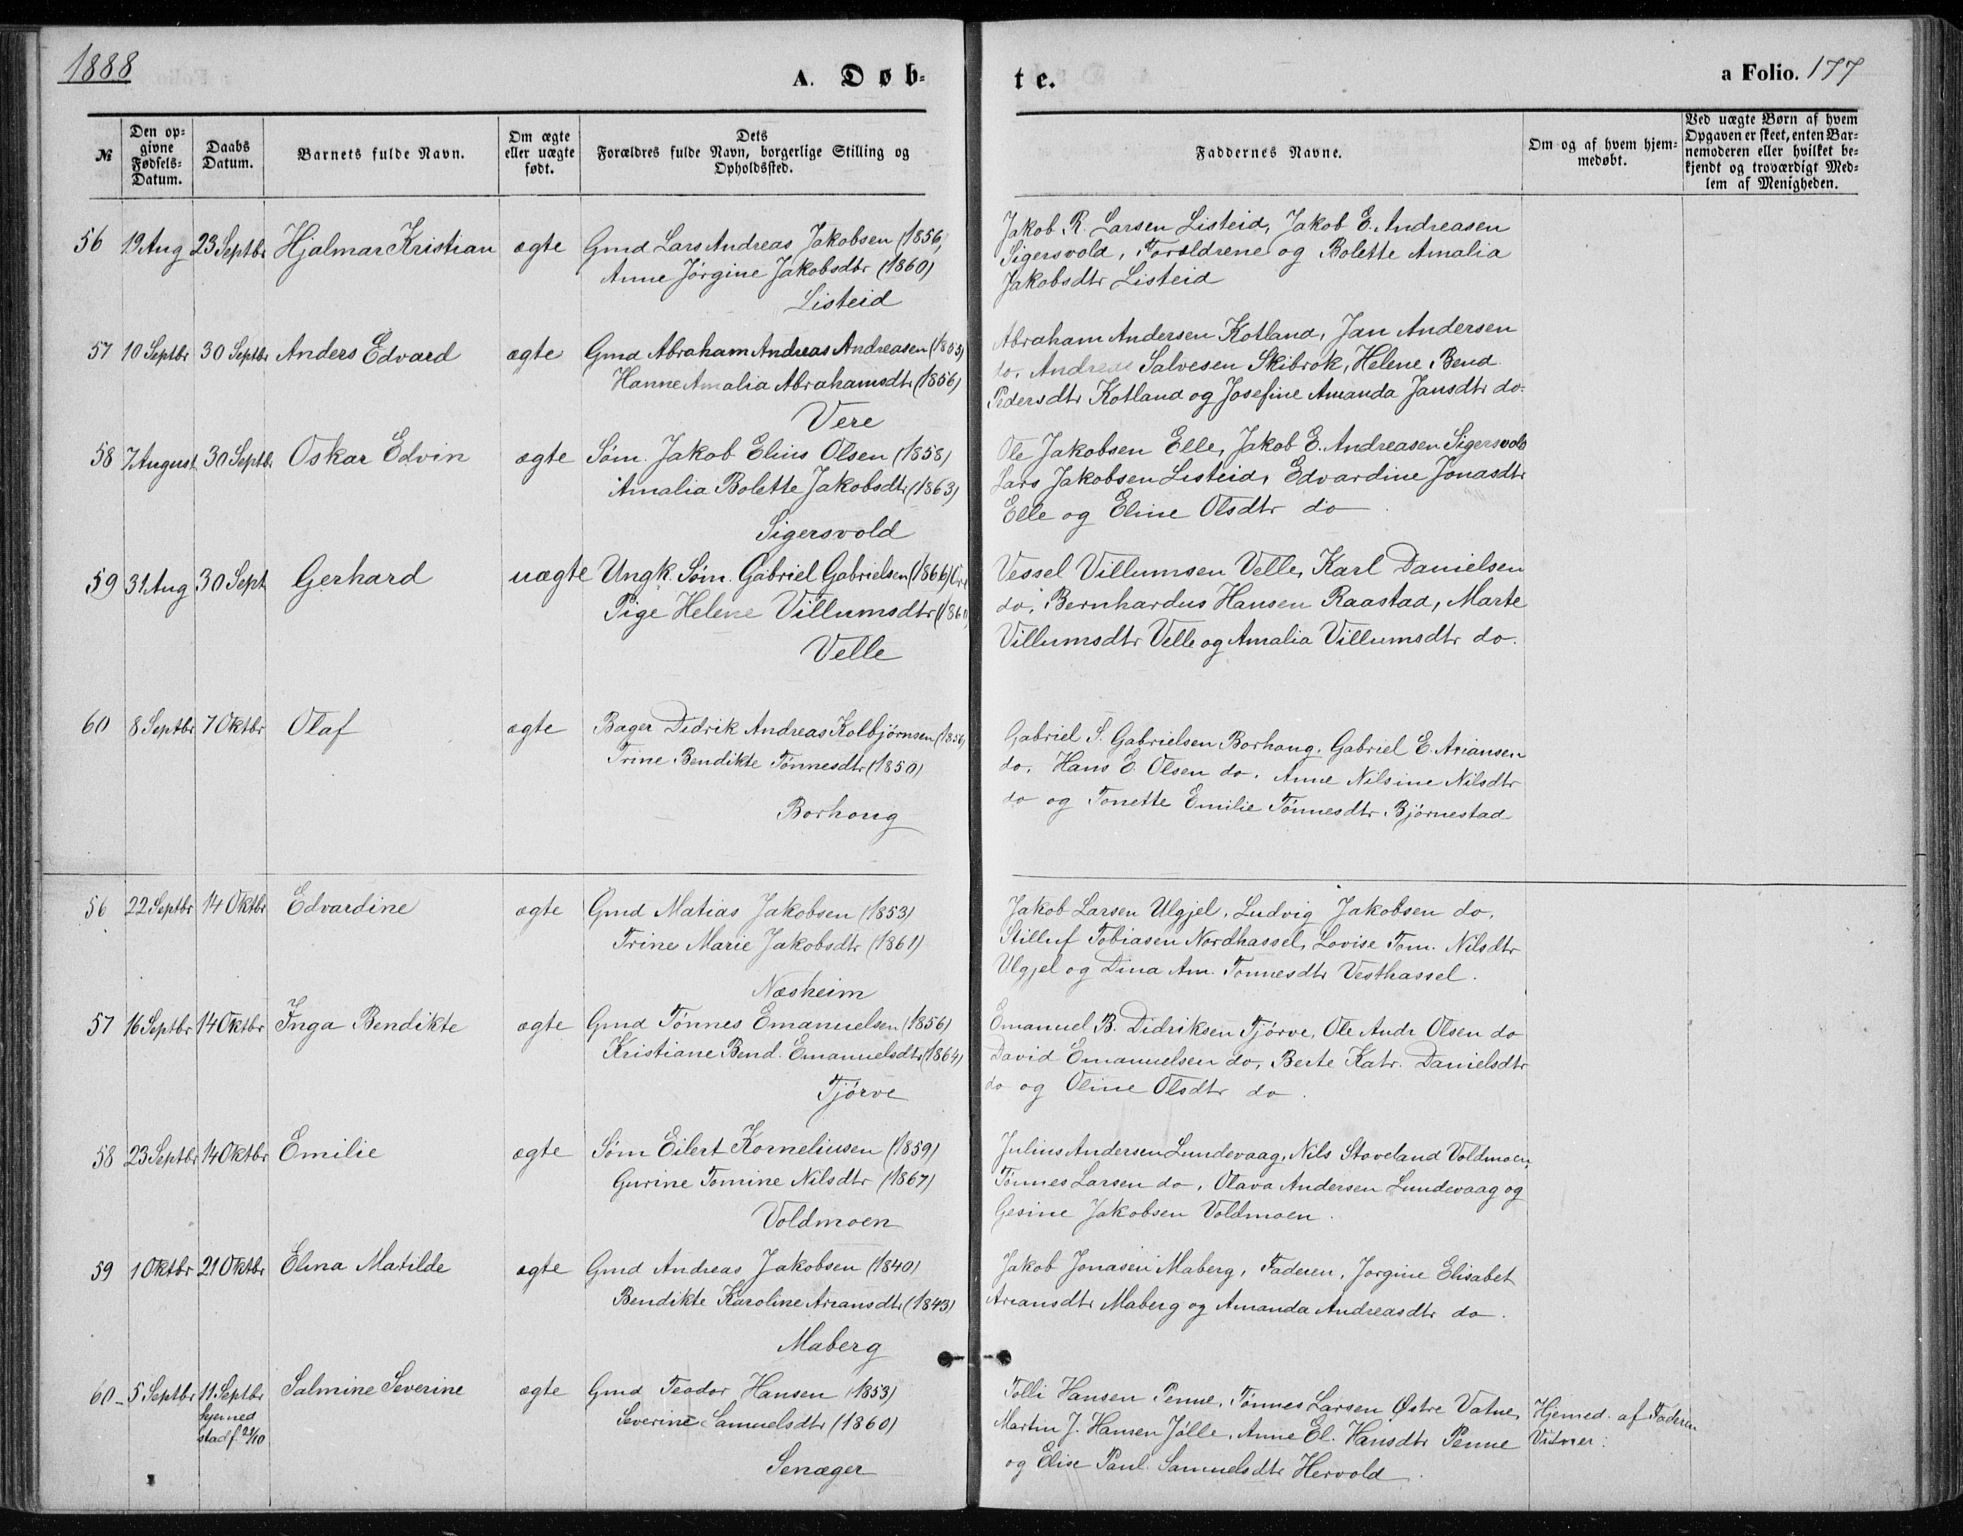 1888
A. Døb-
te.
a Folio. 177
№
Den op-
givne
Fødsels-
Datum.
Daabs
Datum.
Barnets fulde Navn.
Om ægte
eller uægte
født.
Dets
Forældres fulde Navn, borgerlige Stilling og
Opholdssted.
Faddernes Navne.
Om og af hvem hjem-
medøbt.
Ved uægte Børn af hvem
Opgaven er skeet, enten Bar-
nemoderen eller hvilket be-
kjendt og troværdigt Med-
lem af Menigheden.
56 19 Aug 23 Septbr Hjalmar Kristian ægte Gmd Lars Andreas Jakobsen (1856)
Anne Jørgine Jakobsdtr (1860)
Listeid
Jakob R. Larsen Listeid, Jakob E. Andreasen
Sigersvold, Forældrene og Bolette Amalia
Jakobsdtr Listeid
57 10 Septbr 30 Septbr Anders Edvard ægte Gmd Abraham Andreas Andreasen
Hanne Amalia Abrahamsdtr (1856)
Vere
Abraham Andersen Kotland, Jan Andersen
do, Andreas Salvesen Skibrok, Helene Bend.
Pedersdtr Kotland og Josefine Amanda Jansdtr do.
58 7 August 30 Septbr Oskar Edvin ægte Søm. Jakob Elius Olsen (1858)
Amalia Bolette Jakobsdtr (1863)
Sigersvold
Ole Jakobsen Elle, Jakob E. Andreasen Sigersvold
Lars Jakobsen Listeid, Edvardine Jonasdtr
Elle og Eline Olsdtr do
59 31 Aug 30 Sept Gerhard uægte Ungk. Søm. Gabriel Gabrielsen (1866)
Pige Helene Villumsdtr
Velle
Vessel Villumsen Velle, Karl Danielsen
do, Bernhardus Hansen Raastad, Marte
Villumsdtr Velle og Amalia Villumsdtr do.
60 8 Septbr 7 Oktbr Olaf ægte Bager Didrik Andreas Kolbjørnsen (1856)
Trine Bendikte Tønnesdtr (1850)
Borhoug
Gabriel S. Gabrielsen Borhoug, Gabriel E. Ariansen
do, Hans E. Olsen do, Anne Nilsine Nilsdtr
do og Tonette Emilie Tønnesdtr Bjørnestad
56 22 Septbr 14 Oktbr Edvardine ægte Gmd Matias Jakobsen (1853)
Trine Marie Jakobsdtr (1861)
Næsheim
Jakob Larsen Ulgjel, Ludvig Jakobsen do,
Stilluf Tobiasen Nordhassel, Lovise Tom. Nilsdtr
Ulgjel og Dina Am. Tønnesdtr Vesthassel.
57 16 Septbr 14 Oktbr Inga Bendikte ægte Gmd Tønnes Emanuelsen (1856)
Kristiane Bend. Emanuelsdtr (1864)
Tjørve
Emanuel B. Didriksen Tjørve, Ole Andr Olsen do
David Emanuelsen do, Berte Katr. Danielsdtr
do og Oline Olsdtr do.
58 23 Septbr 14 Oktbr Emilie ægte Søm Eilert Korneliusen (1859)
Gurine Tomine Nilsdtr (1867)
Voldmoen
Julius Andersen Lundevaag, Nils Staveland Voldmoen,
Tønnes Larsen do, Olava Andersen Lundevaag og
Gesine Jakobsen Voldmoen.
59 1 Oktbr 21 Oktbr Elina Matilde ægte Gmd Andreas Jakobsen (1840)
Bendikte Karoline Ariansdtr (1843)
Maberg
Jakob Jonasen Maberg, Faderen, Jorgine Elisabet
Ariansdtr Maberg og Amanda Andreasdtr do.
60 5 Septbr 11 Septbr Salmine Severine ægte Gmd Teodor Hansen (1853)
hjemed
stadf 21/10
Severine Samuelsdtr (1860)
Senæger
Tolli Hansen Penne, Tønnes Larsen Østre Vatne,
Martin J. Hansen Jølle, Anne El. Hansdtr Penne
og Elise Paul. Samuelsdtr Hervold.
Hjemed. af Faderen
Vidner: